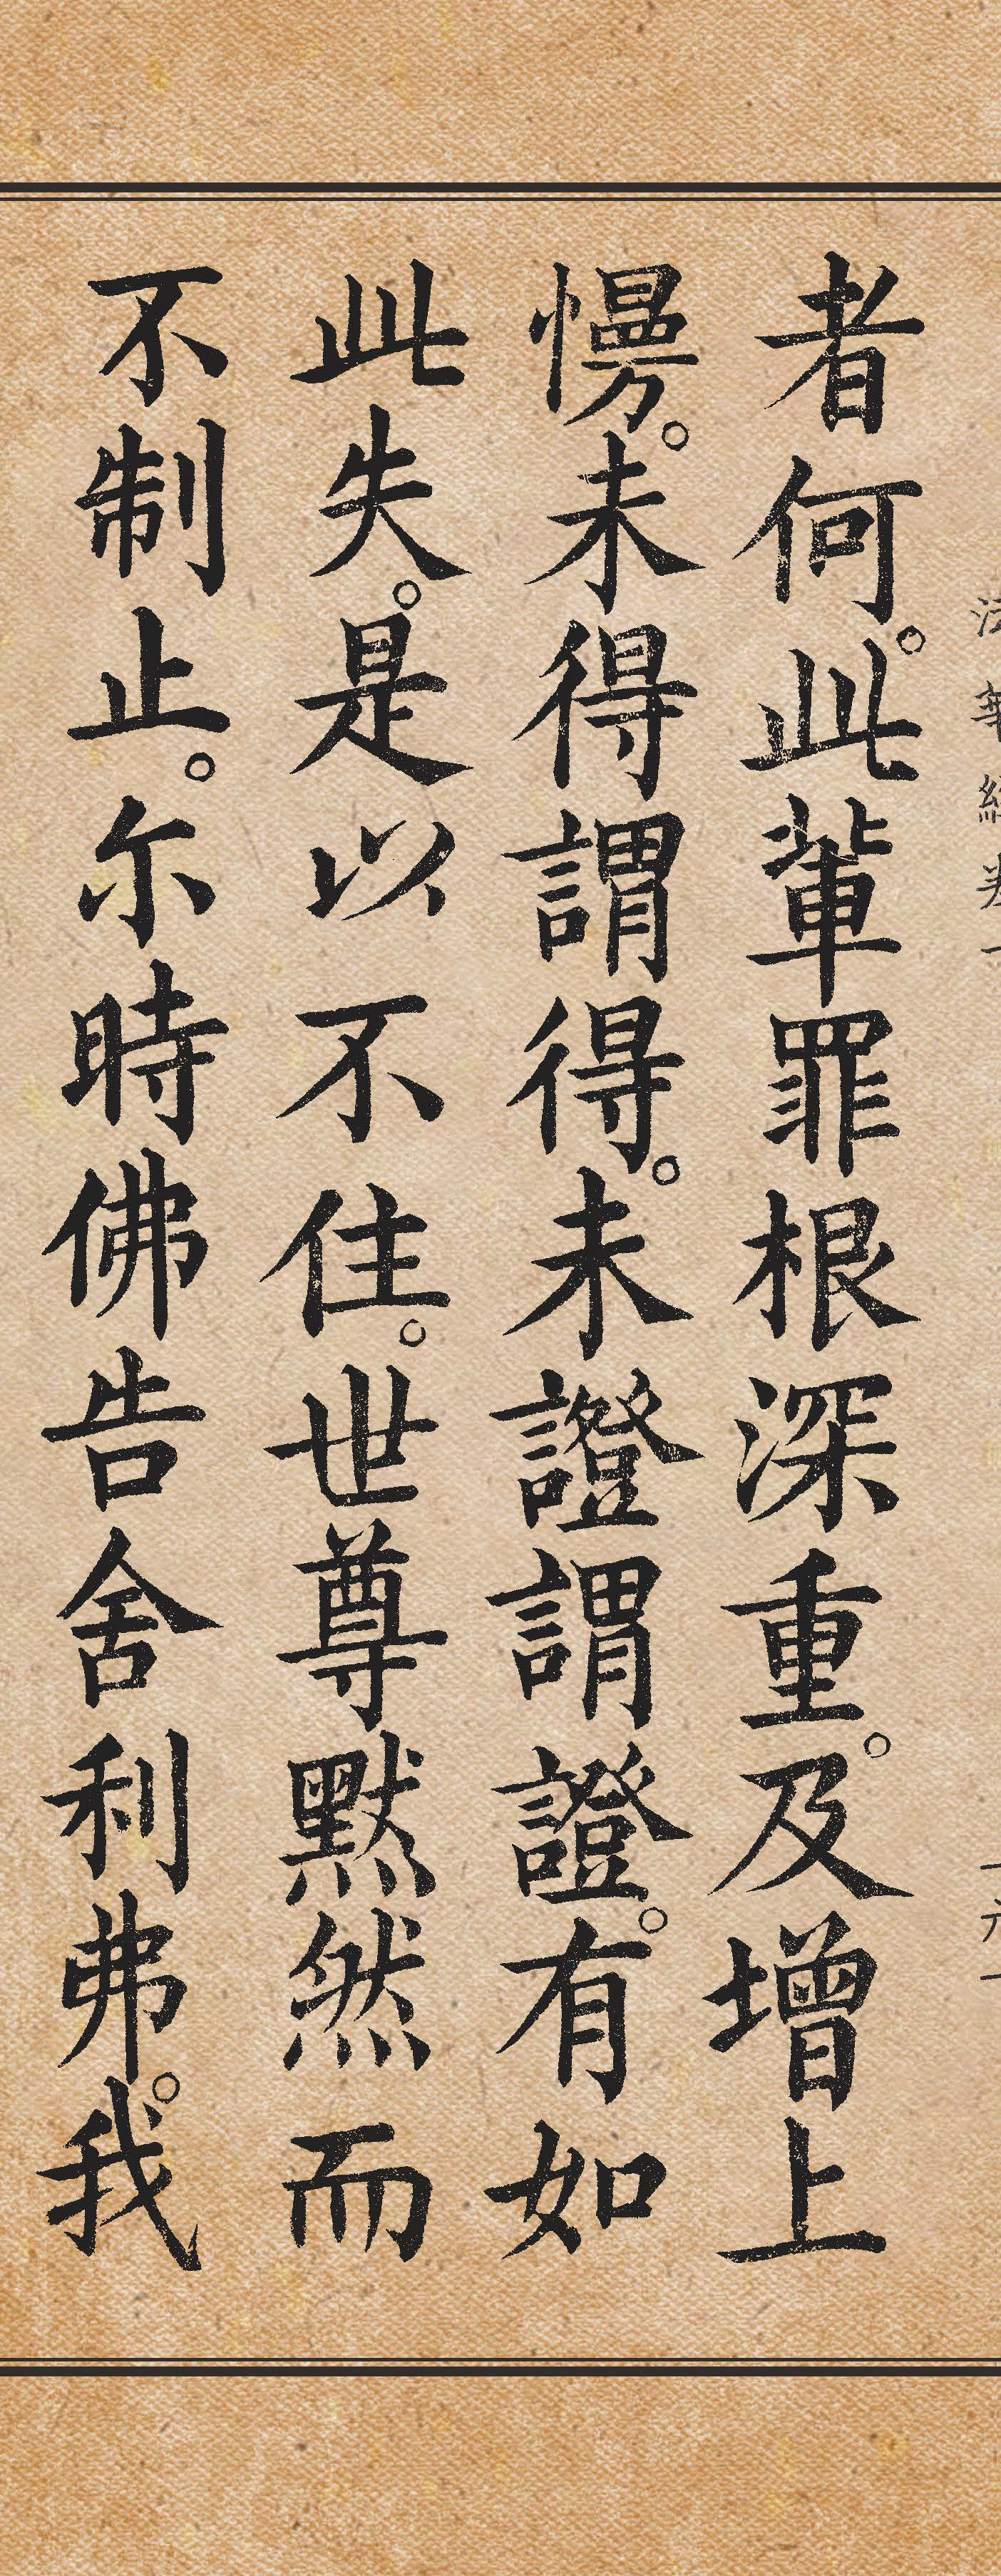 法華經卷一
十六一
者何。此輩罪根深重。及增上
慢。未得謂得。未證謂證。有如
此失。是以不住。世尊默然而
不制止。尔時佛告舍利弗。我